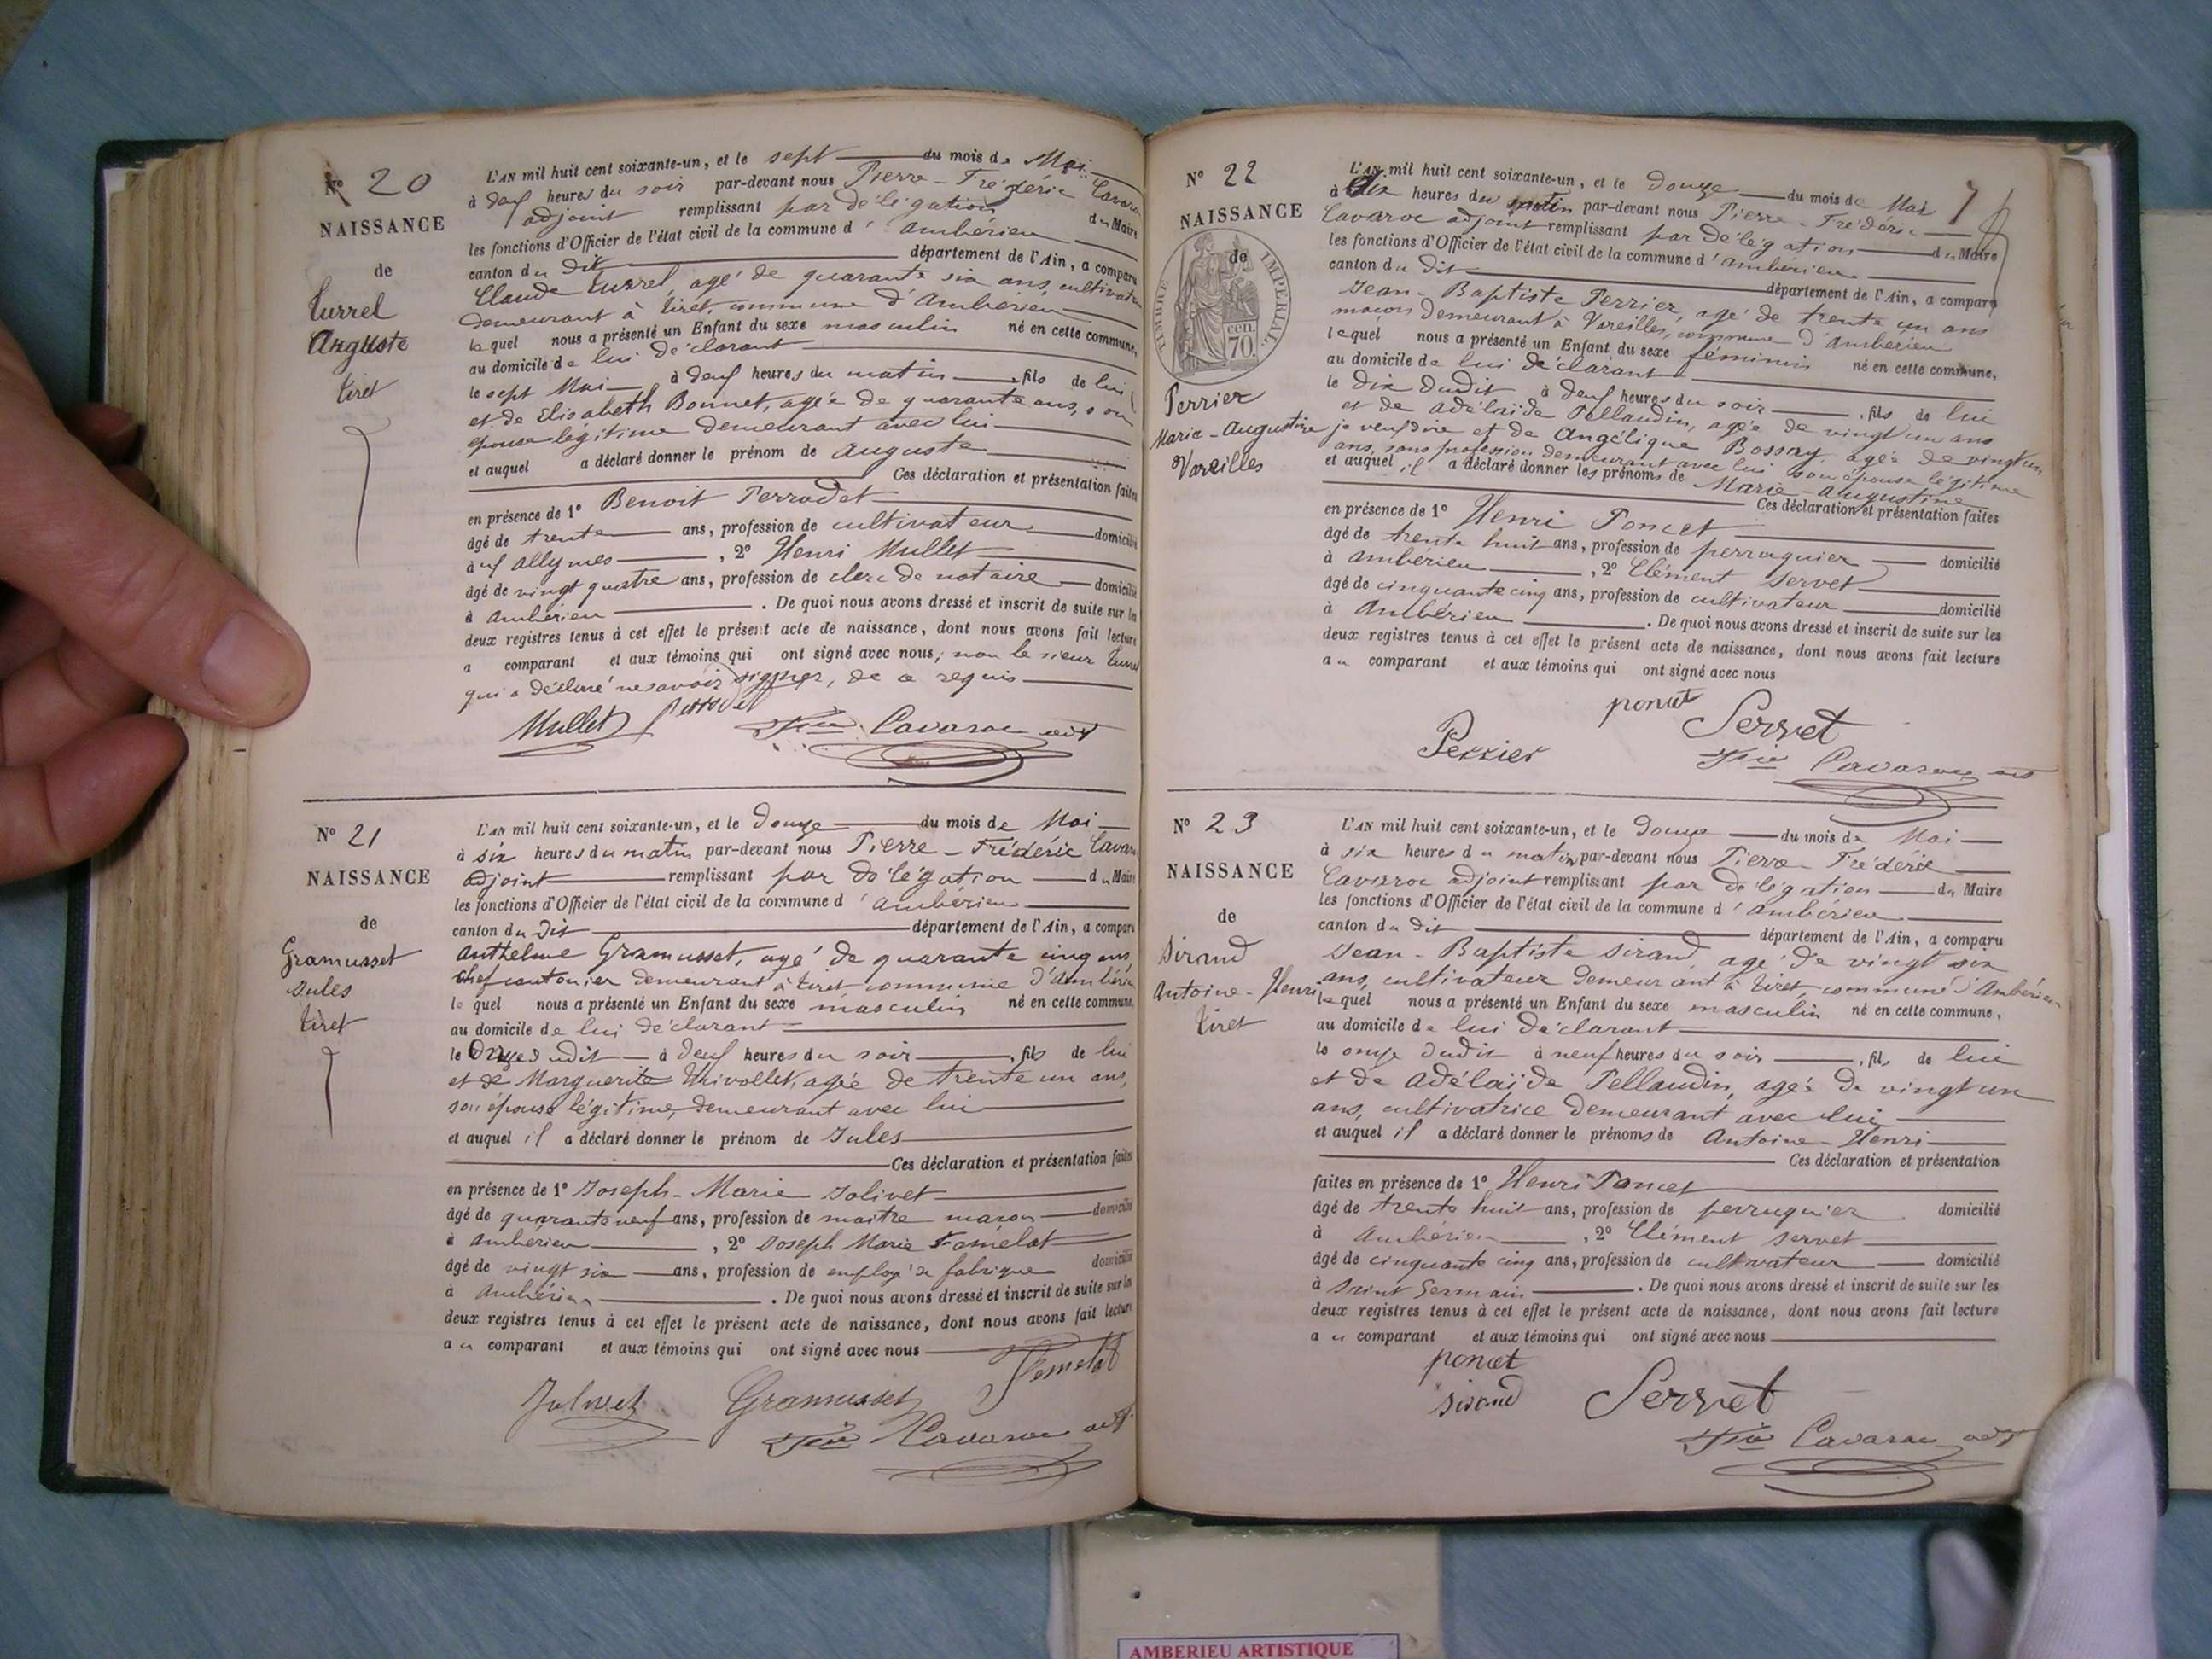 N° 20
NAISSANCE
de
Turrel
Auguste
Tiret
L'AN mil huit cent soixante-un, et le sept du mois de Mai
à deux heures du soir par-devant nous Pierre-Frédéric Cavaroc
adjoint remplissant par délégation du Maire
les fonctions d'Officier de l'état civil de la commune d'Ambérieu
canton du dit département de l'Ain, a comparu
Claude Turrel, agé de quarante six ans, cultivateur
demeurant à Tiret, commune d'Ambérieu
lequel nous a présenté un Enfant du sexe masculin né en cette commune,
au domicile de lui déclarant
le sept Mai, à deux heures du matin, fils de lui
et de Elisabeth Bonnet, agée de quarante ans, son
épouse légitime demeurant avec lui
et auquel a déclaré donner le prénom de Auguste
Ces déclaration et présentation faites
en présence de 1° Benoit Perrodet
âgé de trente ans, profession de cultivateur domicilié
aux Allymes, 2° Henri Mullet
âgé de vingt quatre ans, profession de clerc de notaire domicilié
à Ambérieu. De quoi nous avons dressé et inscrit de suite sur les
deux registres tenus à cet effet le présent acte de naissance, dont nous avons fait lecture
a comparant et aux témoins qui ont signé avec nous, non le sieur Turrel
qui a déclaré ne savoir signer, de ce requis
Mullet Perrodet
Cavaroc adjt
N° 21
NAISSANCE
de
Gramusset
Jules
Tiret
L'AN mil huit cent soixante-un, et le douze du mois de Mai
à six heures du matin par-devant nous Pierre-Frédéric Cavaroc
adjoint remplissant par délégation du Maire
les fonctions d'Officier de l'état civil de la commune d'Ambérieu
canton du dit département de l'Ain, a comparu
Anthelme Gramusset, agé de quarante cinq ans,
chef cantonier demeurant à Tiret commune d'Ambérieu
lequel nous a présenté un Enfant du sexe masculin né en cette commune,
au domicile de lui déclarant
le onze dudit à deux heures du soir, fils de lui
et de Marguerite Thivollet, agée de trente un ans,
son épouse légitime, demeurant avec lui
et auquel il a déclaré donner le prénom de Jules
Ces déclaration et présentation faites
en présence de 1° Joseph-Marie Jolivet
âgé de quarante neuf ans, profession de maitre maçon domicilié
à Ambérieu, 2° Joseph Marie Femelat
âgé de vingt six ans, profession de employé de fabrique domicilié
à Ambérieu. De quoi nous avons dressé et inscrit de suite sur les
deux registres tenus à cet effet le présent acte de naissance, dont nous avons fait lecture
au comparant et aux témoins qui ont signé avec nous
Femelat
Jolivet Gramusset
Cavaroc adjt
N° 22
NAISSANCE
de
TIMBRE IMPERIAL
70 cen.
Perrier
Marie-Augustine
Vareilles
7
L'AN mil huit cent soixante-un, et le douze du mois de Mai
à dix heures du matin par-devant nous Pierre-Frédéric
Cavaroc adjoint remplissant par délégation du Maire
les fonctions d'Officier de l'état civil de la commune d'Ambérieu
canton du dit département de l'Ain, a comparu
Jean-Baptiste Perrier, agé de trente un ans
maçon demeurant à Vareilles, commune d'Ambérieu
lequel nous a présenté un Enfant du sexe féminin né en cette commune,
au domicile de lui déclarant
le dix dudit à deux heures du soir, fils de lui
et de Adélaïde Pellaudin, agée de vingt un ans
je veux dire et de Angélique Bossay agée de vingt un
ans, sans profession demeurant avec lui son épouse légitime
et auquel il a déclaré donner les prénoms de Marie-Augustine
Ces déclaration et présentation faites
en présence de 1° Henri Poncet
âgé de trente huit ans, profession de perruquier domicilié
à Ambérieu, 2° Clément Servet
âgé de cinquante cinq ans, profession de cultivateur domicilié
à Ambérieu. De quoi nous avons dressé et inscrit de suite sur les
deux registres tenus à cet effet le présent acte de naissance, dont nous avons fait lecture
au comparant et aux témoins qui ont signé avec nous
poncet
Servet
Perrier
Cavaroc adjt
N° 23
NAISSANCE
de
Sirand
Antoine-Henri
Tiret
L'AN mil huit cent soixante-un, et le douze du mois de Mai
à six heures du matin par-devant nous Pierre Frédéric
Cavaroc adjoint remplissant par délégation du Maire
les fonctions d'Officier de l'état civil de la commune d'Ambérieu
canton du dit département de l'Ain, a comparu
Jean-Baptiste Sirand agé de vingt six
ans, cultivateur demeurant à Tiret, commune d'Ambérieu
lequel nous a présenté un Enfant du sexe masculin né en cette commune,
au domicile de lui déclarant
le onze dudit à neuf heures du soir, fils de lui
et de Adélaïde Pellaudin, agée de vingt un
ans, cultivatrice demeurant avec lui
et auquel il a déclaré donner le prénoms de Antoine-Henri
Ces déclaration et présentation
faites en présence de 1° Henri Poncet
âgé de trente huit ans, profession de perruquier domicilié
à Ambérieu, 2° Clément Servet
âgé de cinquante cinq ans, profession de cultivateur domicilié
à Saint Germain. De quoi nous avons dressé et inscrit de suite sur les
deux registres tenus à cet effet le présent acte de naissance, dont nous avons fait lecture
au comparant et aux témoins qui ont signé avec nous
poncet
sirand Servet
Cavaroc adjt
AMBERIEU ARTISTIQUE